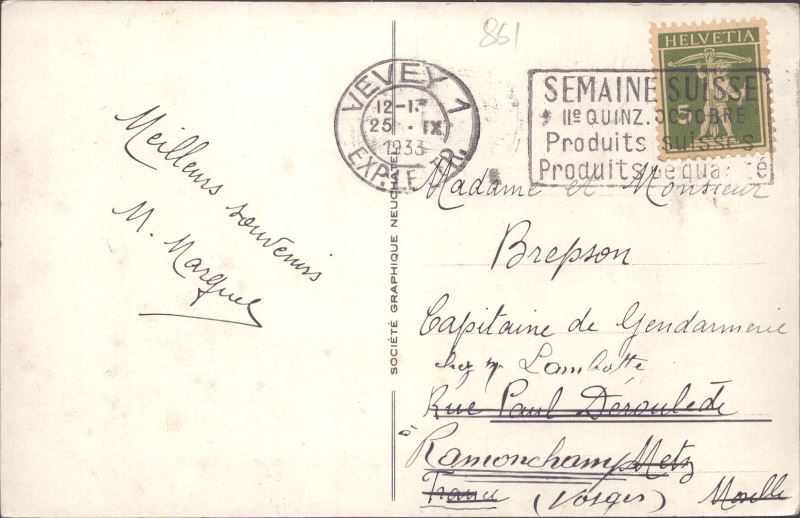 861
HELVETIA
5
VEVEY 1
12-1
25. IX
1933
EXP. LETTR.
SEMAINE SUISSE
IIe QUINZ. OCTOBRE
Produits suisses
Produits de qualité
Meilleurs souvenirs
M. Marguel
SOCIÉTÉ GRAPHIQUE NEUCHATEL
Madame et Monsieur
Brepson
Capitaine de Gendarmerie
chez M. Lambotte
Rue Paul Déroulède
à Ramonchamp Metz
France (Vosges) Moselle